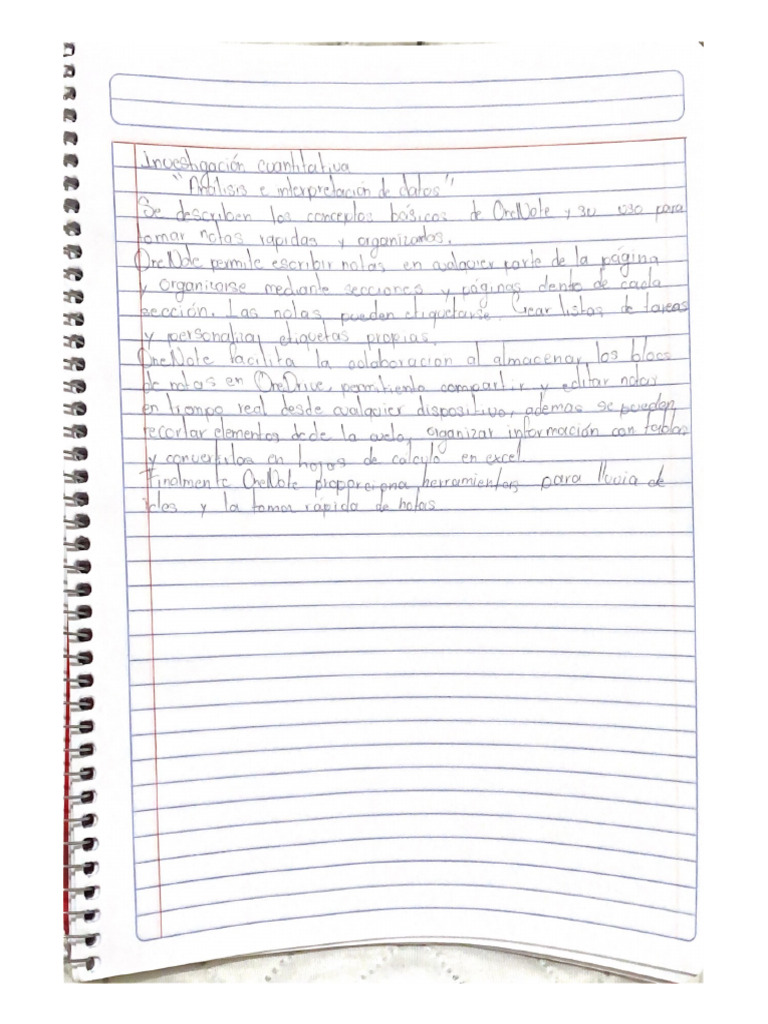 Investigación cuantitativa
"Análisis e interpretación de datos",
Se describen los conceptos básicos de OneNote y su uso para
tomar notas rápidas y organizadas.
OneNote permite escribir notas en cualquier parte de la página
y organizarse mediante secciones y páginas dento de cada
sección. Las notas pueden etiquetarse. Crear listas de tareas
y personalizar etiquetas propias.
OneNote facilita la colaboracion al almacenar los blocs
de notas en OneDrive, permitiento compartir y editar notas
en tiempo real desde cualquier dispositivo, ademas se pueden
recortar elementos dede la organizar información con tablas
y convertirlos en hojas de calculo en excel.
Finalmente OneNote proporciona herramientas para lluvia de
y la toma rápida de notas.